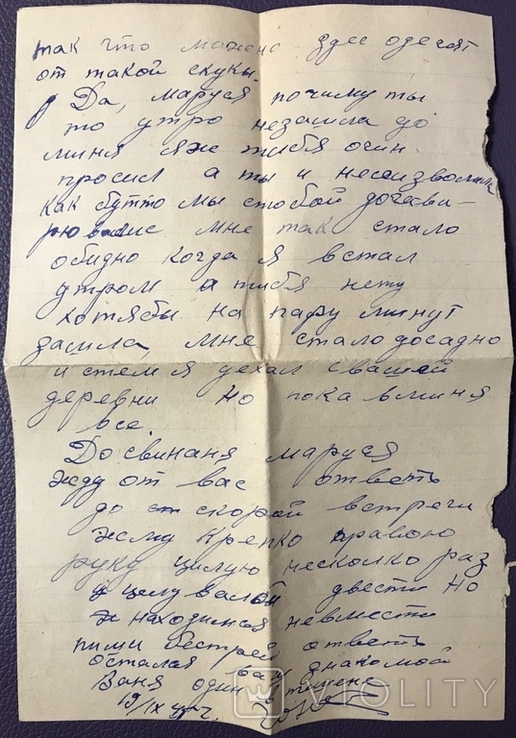 так что можно здес одесят
от такой скуки.
Да, маруся почиму ты
то утро незашла до
миня я же тибя очин
просил а ты и несоизволила
как бутто мы стобой догава-
ривались мне так стало
обидно когда я встал
утром а тибя нету
хотябы на пару минут
зашла, мне стало досадно
и стем я уехал свашей
деревни но пока вминя
все.
Досвиданя маруся
жду от вас ответь
до скорой встречи
жму крепко правою
руку цилую несколко раз
целу двести но
находимся невмести
пиши бестрей ответь
осталая ваш знакомой
Ваня один
19/IX
VIOLITY